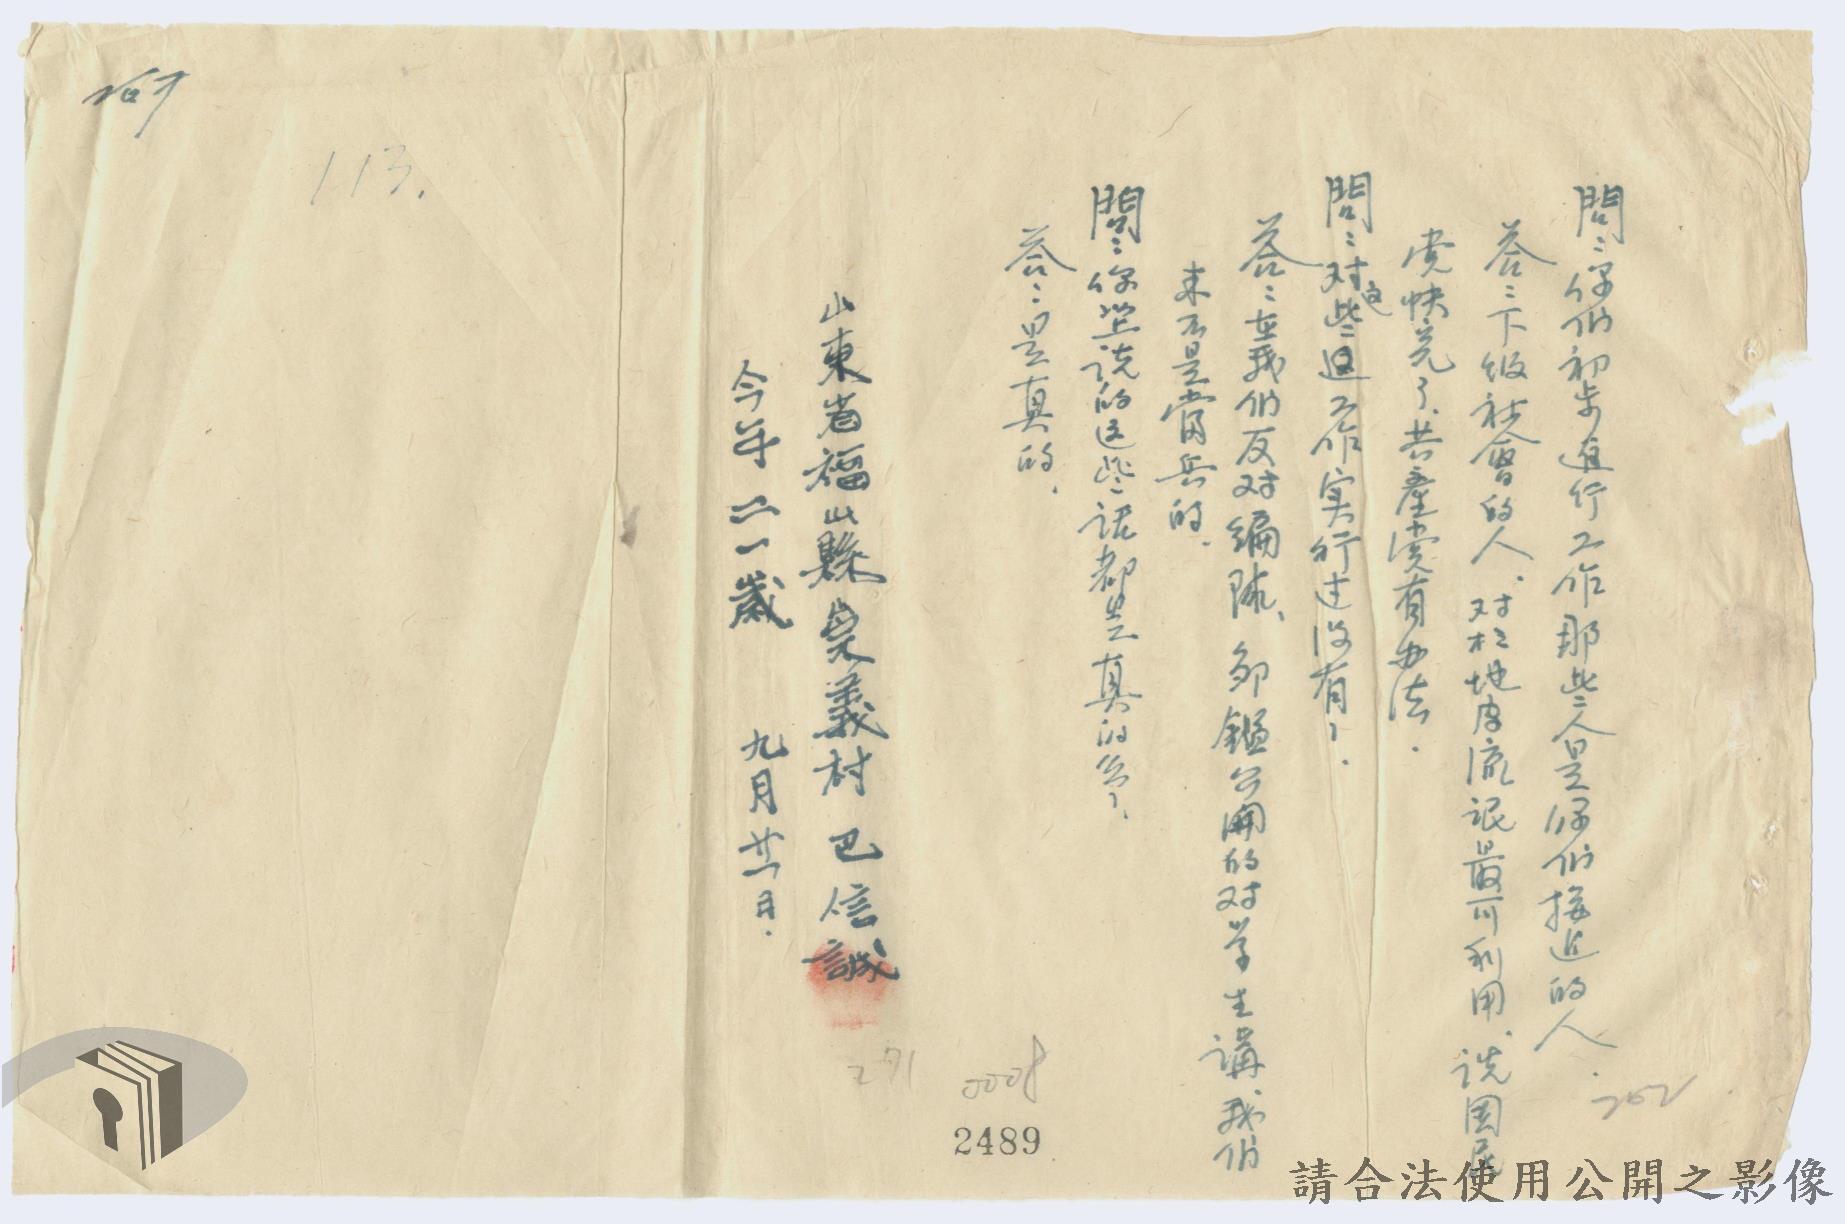 問：你們初步進行工作那些人是你們接近的人．
答：下級社會的人．对於地皮流氓最可利用、説国民
党快完了、共產党有办法．
問：对这些工作实行过没有？．
答：在我們反对編隊、邹鑑公開的对学生講、我們
来不是當兵的．
問：你説的这些話都是真的、
答：是真的．
山東省福山縣義村 巴信誠
今年二一歲 九月廿一日．
113.
271
0008
2489
202
請合法使用公開之影像